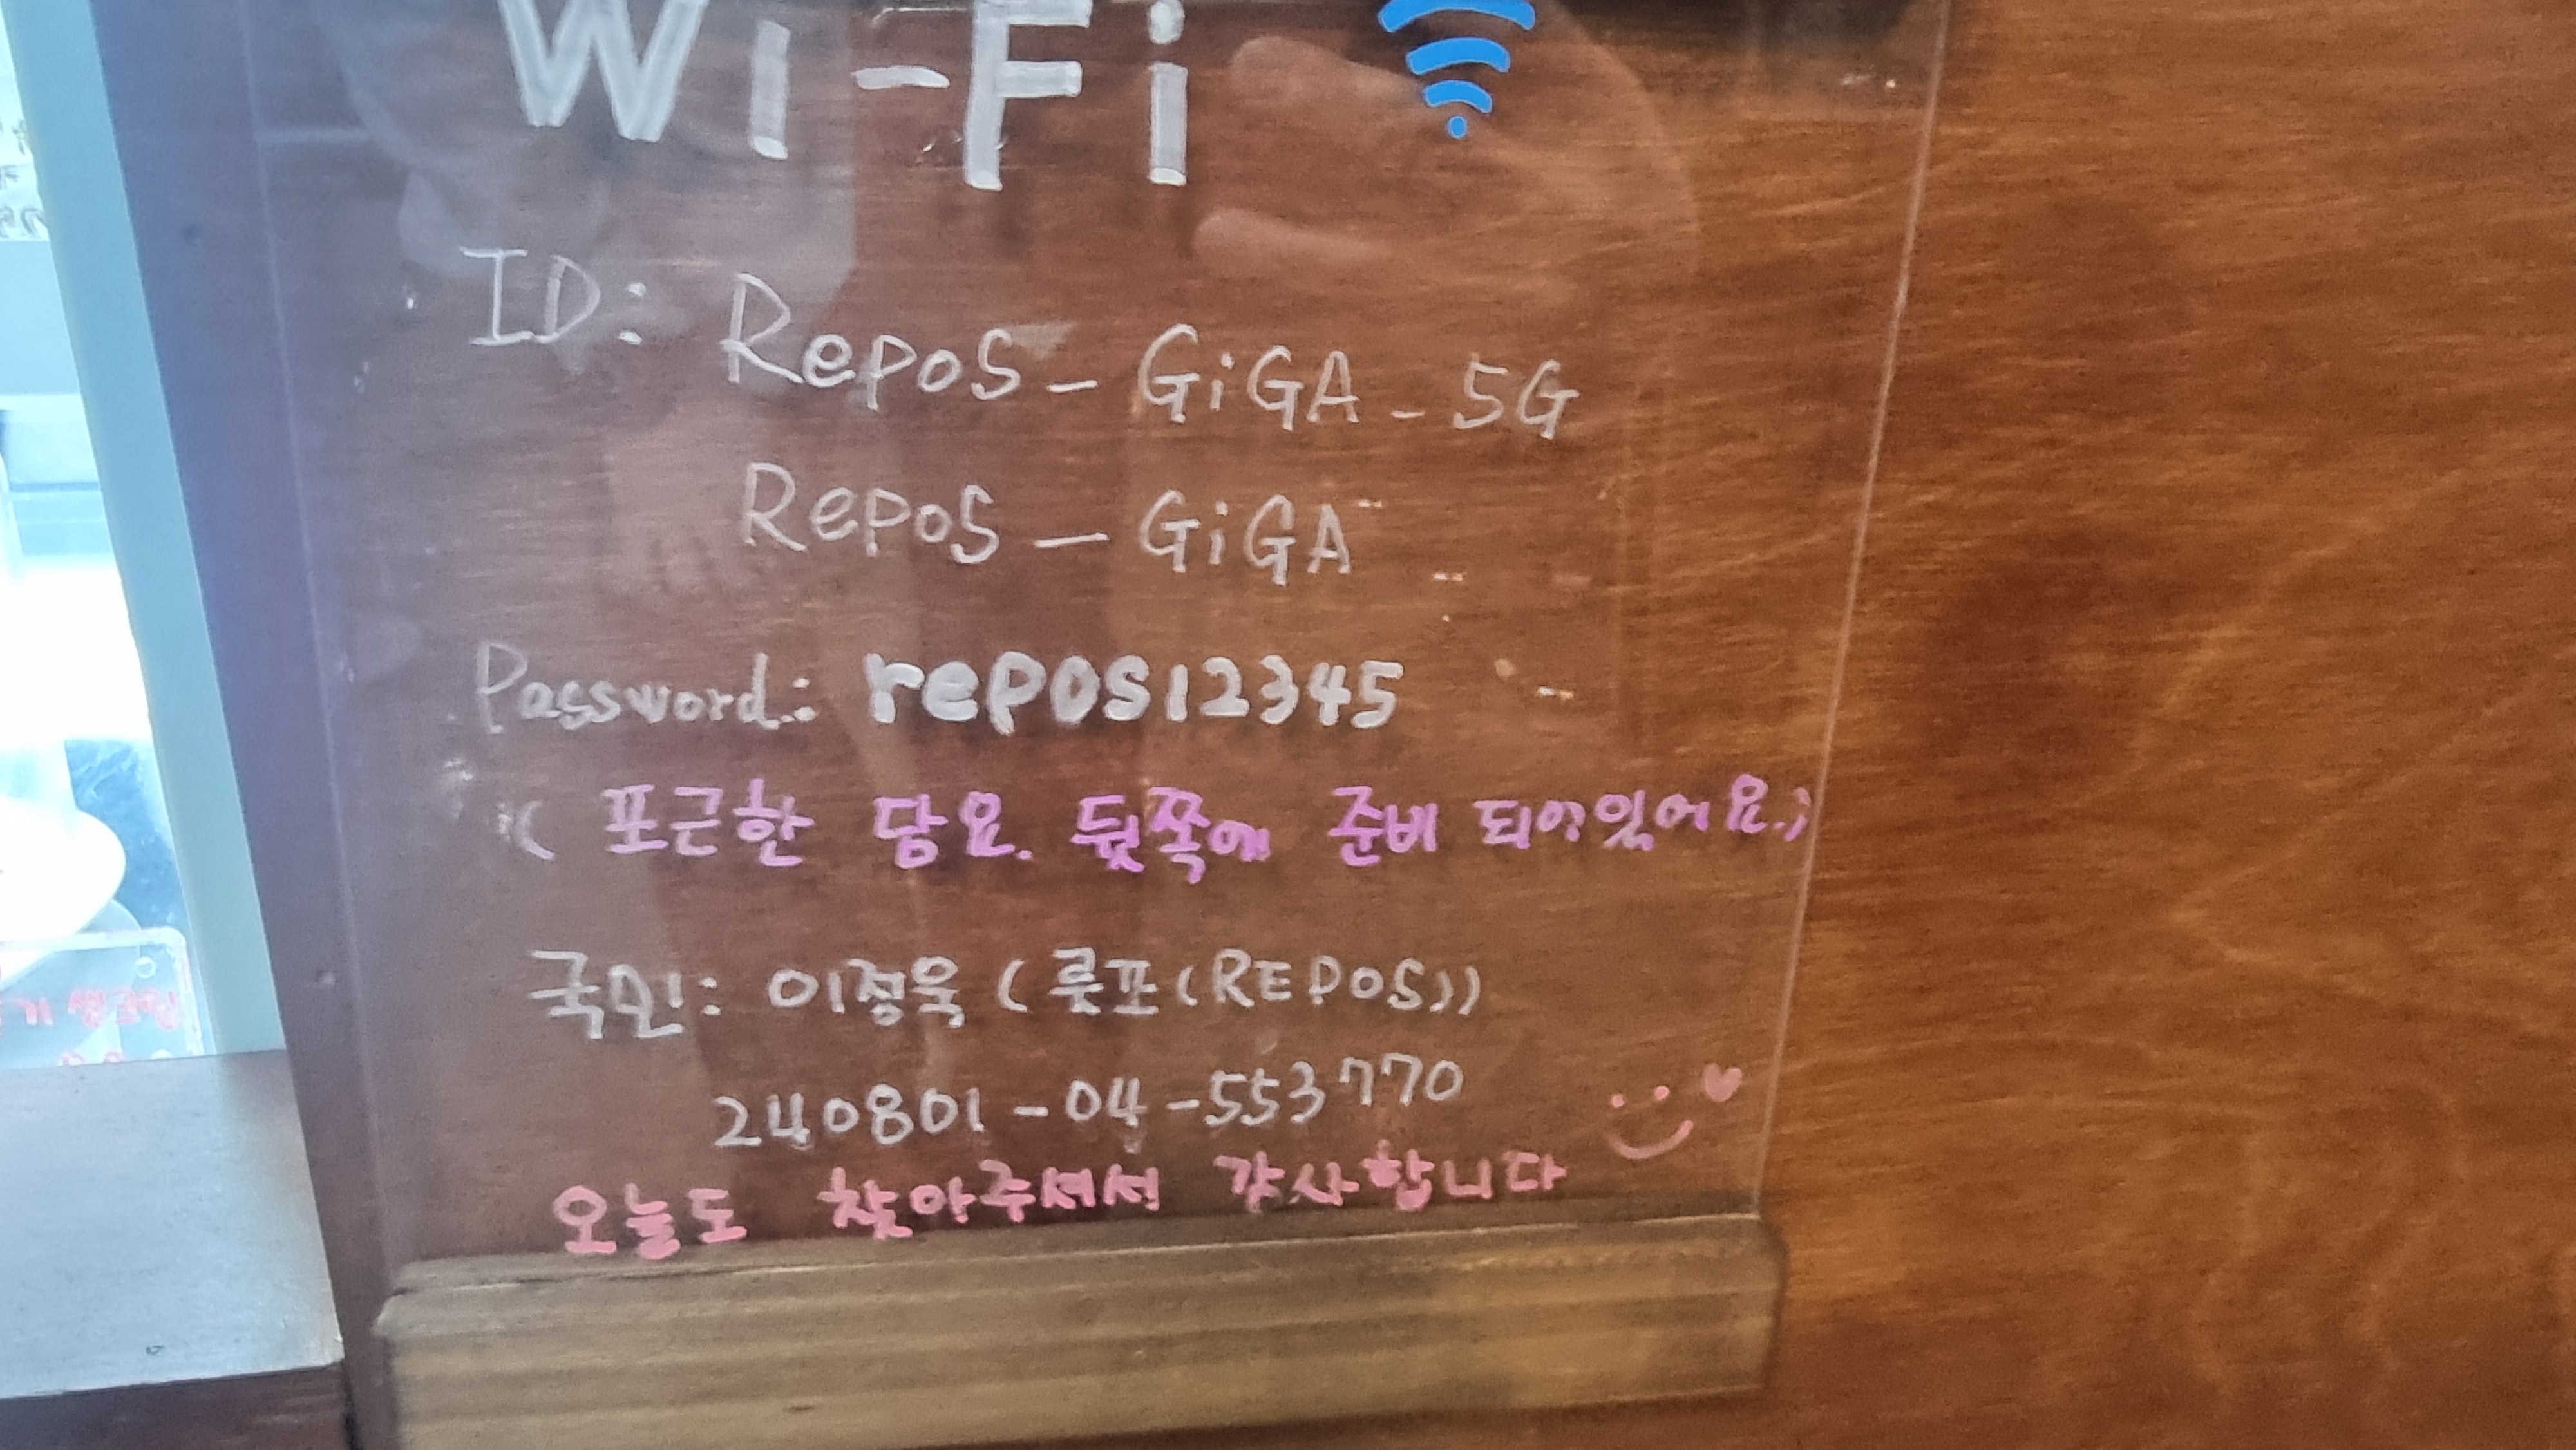 Wi-Fi
ID: RepoS_GiGA_5G
RepoS_GiGA
Password: repos12345
( 포근한 담요. 뒷쪽에 준비 되어있어요.)
국민: 이정욱 (릇포(REPOS))
240801-04-553770
오늘도 찾아주셔서 감사합니다
생크림